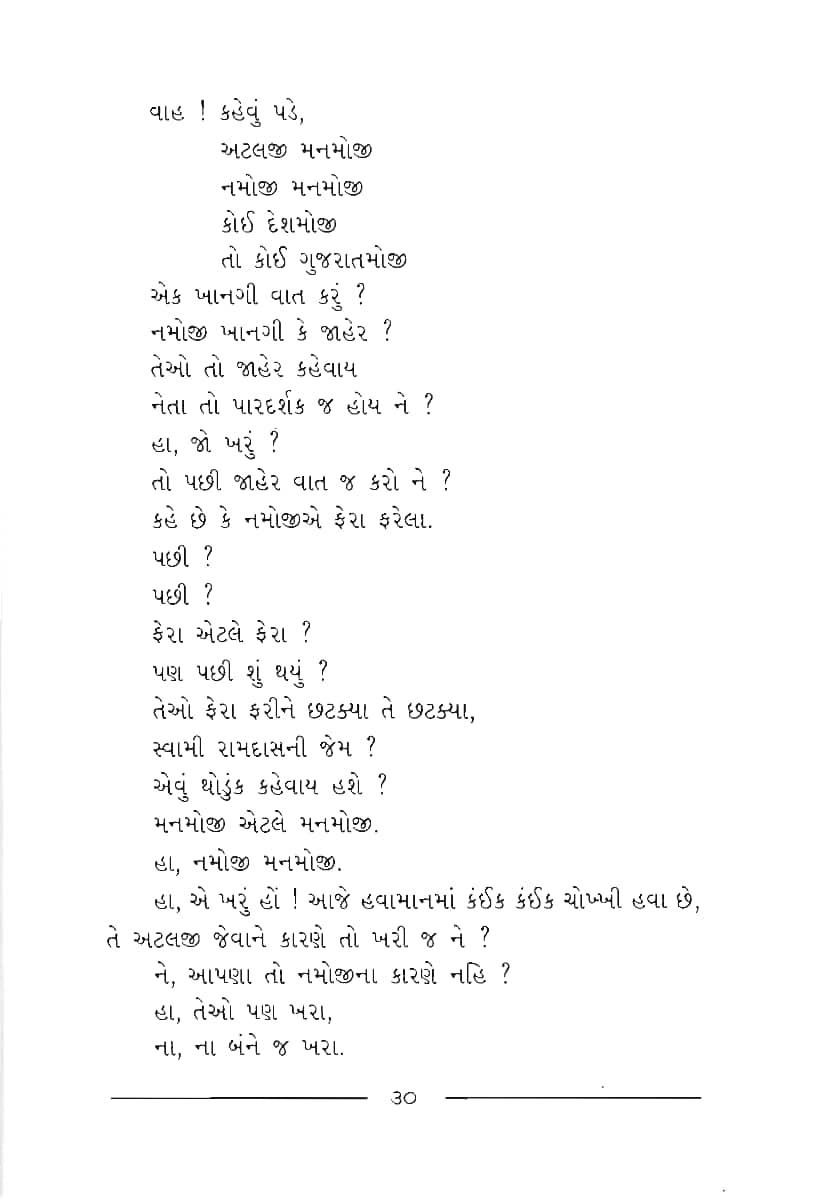 વાહ ! કહેવું પડે,
અટલજી મનમોજી
નમોજી મનમોજી
કોઈ દેશમોજી
તો કોઈ ગુજરાતમોજી
એક ખાનગી વાત કરું ?
નમોજી ખાનગી કે જાહેર ?
તેઓ તો જાહેર કહેવાય
નેતા તો પારદર્શક જ હોય ને ?
હા, જો ખરું ?
તો પછી જાહેર વાત જ કરો ને ?
કહે છે કે નમોજીએ ફેરા ફરેલા.
પછી ?
પછી ?
ફેરા એટલે ફેરા ?
પણ પછી શું થયું ?
તેઓ ફેરા ફરીને છટક્યા તે છટક્યા,
સ્વામી રામદાસની જેમ ?
એવું થોડુંક કહેવાય હશે ?
મનમોજી એટલે મનમોજી.
હા, નમોજી મનમોજી.
હા, એ ખરું હોં ! આજે હવામાનમાં કંઈક કંઈક ચોખ્ખી હવા છે,
તે અટલજી જેવાને કારણે તો ખરી જ ને ?
ને, આપણા તો નમોજીના કારણે નહિ ?
હા, તેઓ પણ ખરા,
ના, ના બંને જ ખરા.
૩૦